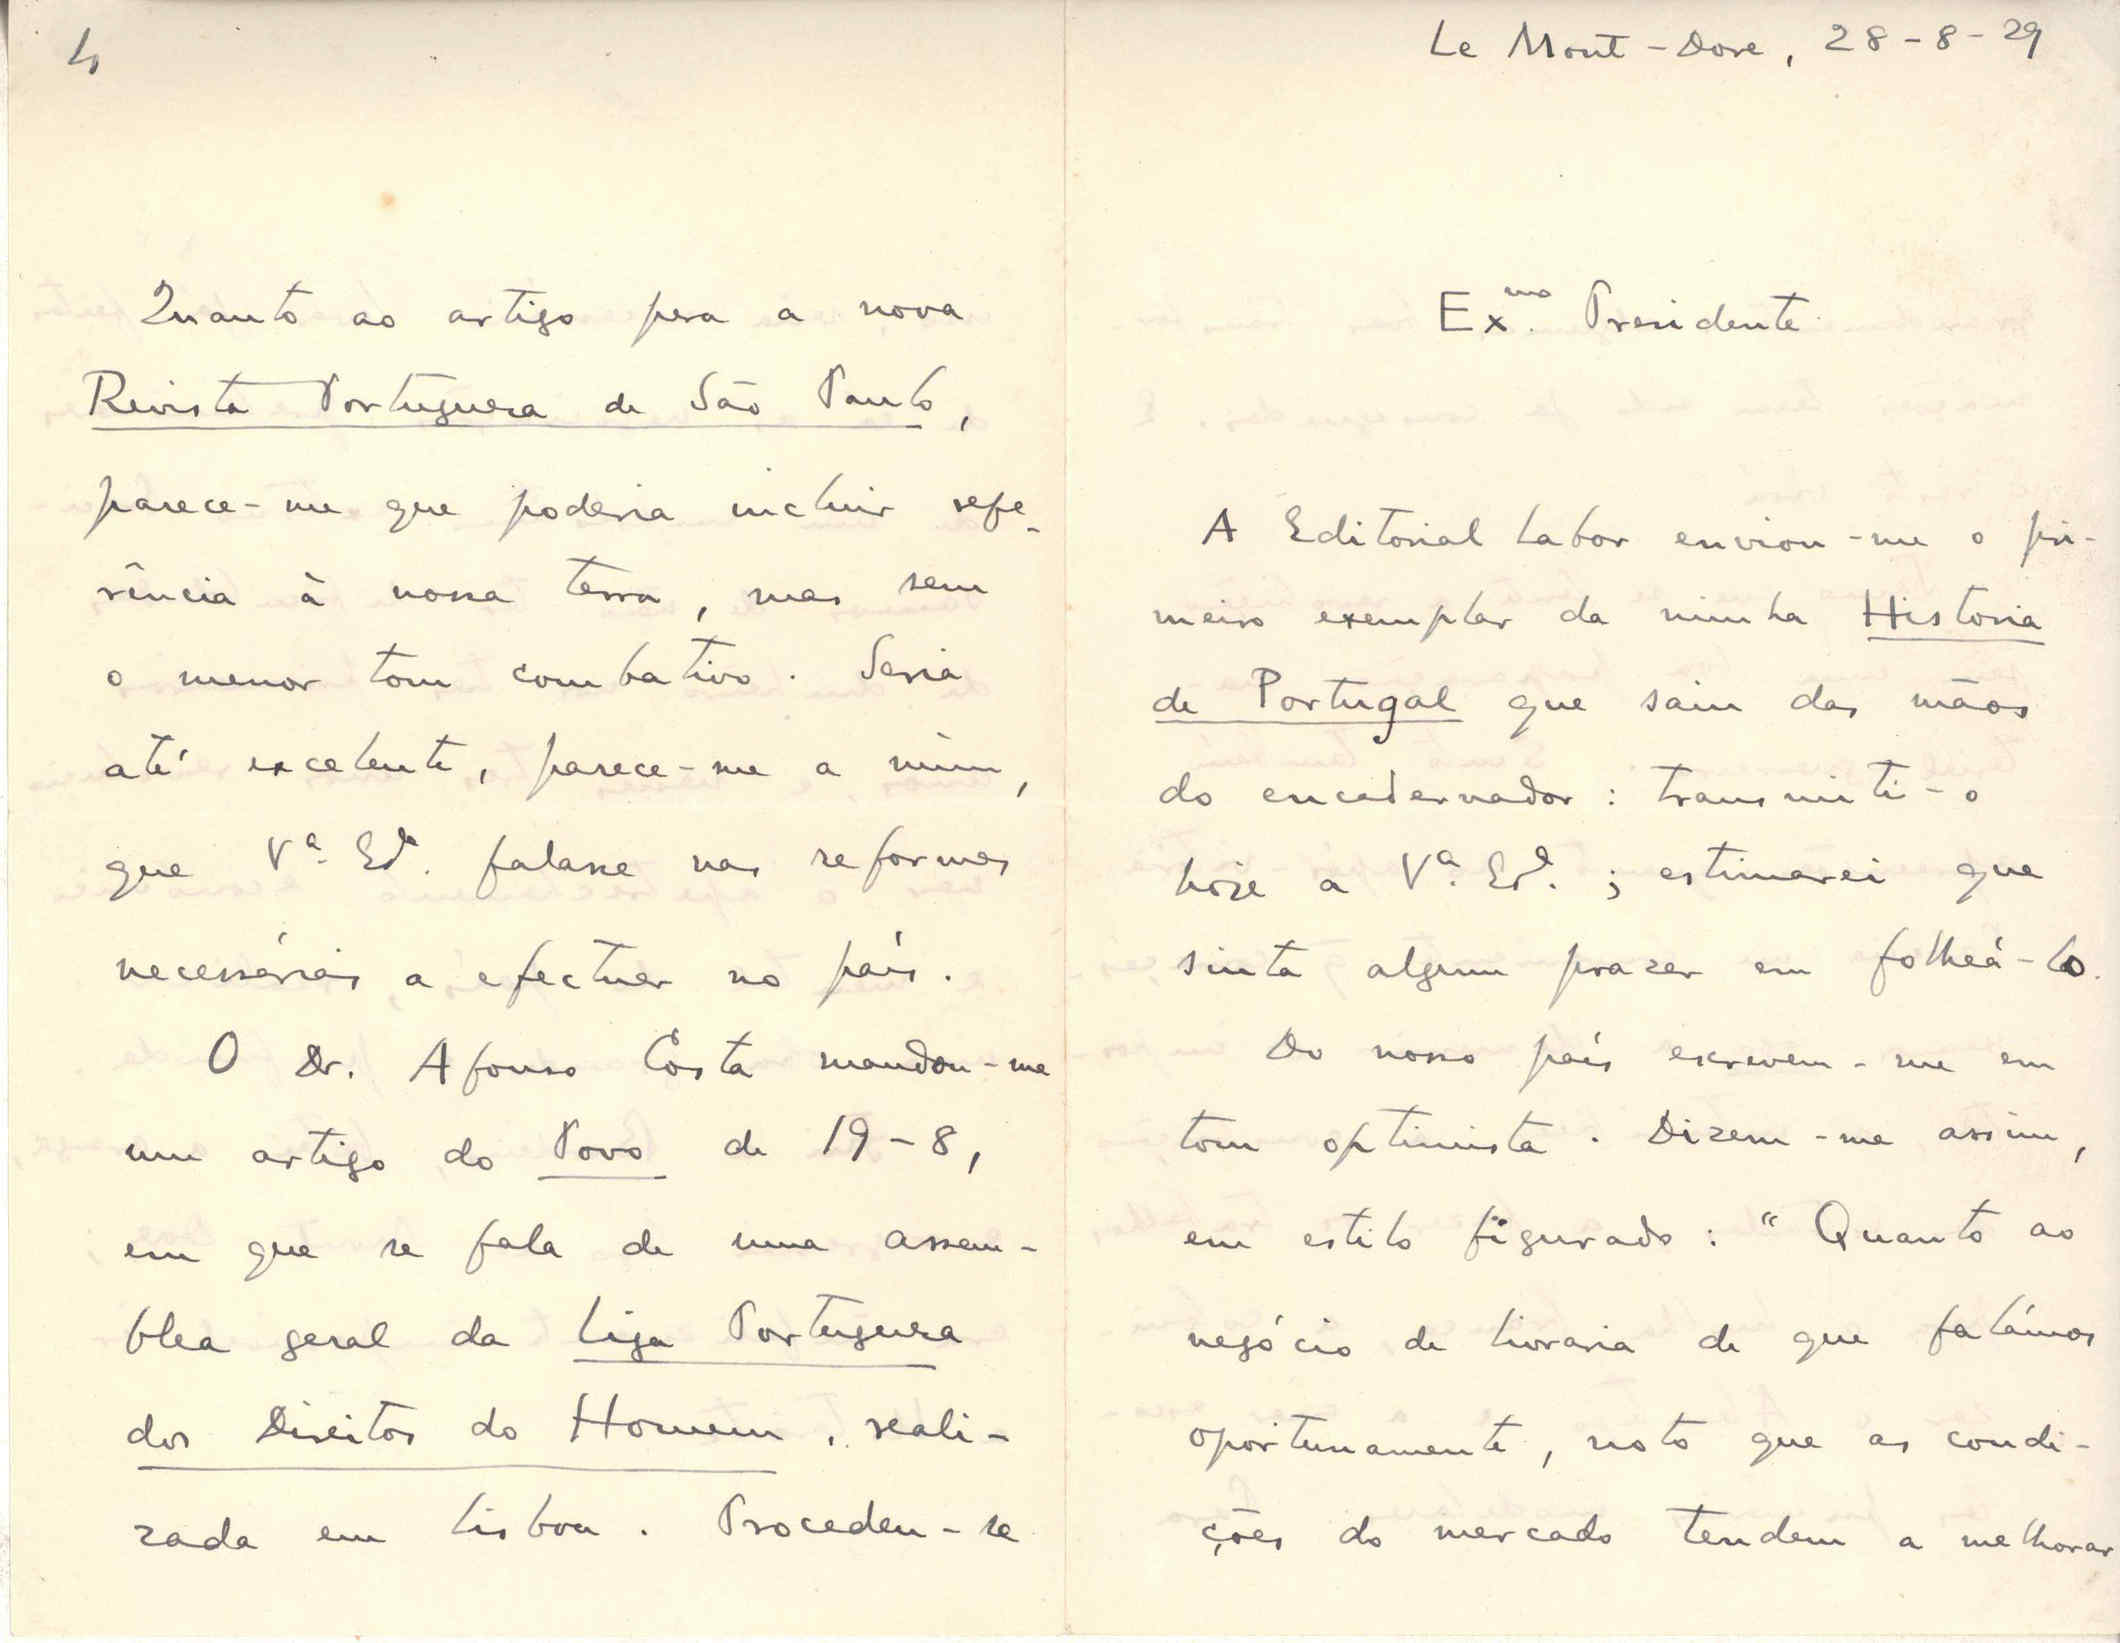 4
Quanto ao artigo pera a nova
Revista Portuguesa de São Paulo,
parece-me que poderia incluir refe-
rência à nossa terra, mas sem
o menor tom combativo. Seria
até excelente, parece-me a mim,
que Vª. Exª. falasse nas reformas
necessárias a efectuar no país.
O Dr. Afonso Costa mandou-me
um artigo do Povo de 19-8,
em que se fala de uma assem-
blea geral da Liga Portuguesa
dos Direitos do Homem, reali-
zada em Lisboa. Procedeu-se
Le Mont-Dore, 28-8-29
Exmo. Presidente
A Editorial Labor enviou-me o pri-
meiro exemplar da minha Historia
de Portugal que saiu das mãos
do encadernador: transmiti-o
hoje a Vª. Exª.; estimarei que
sinta algum prazer em folheá-lo.
Do nosso país escrevem-me em
tom optimista. Dizem-me assim,
em estilo figurado: "Quanto ao
negócio de livraria de que falámos
oportunamente, noto que as condi-
ções do mercado tendem a melhorar